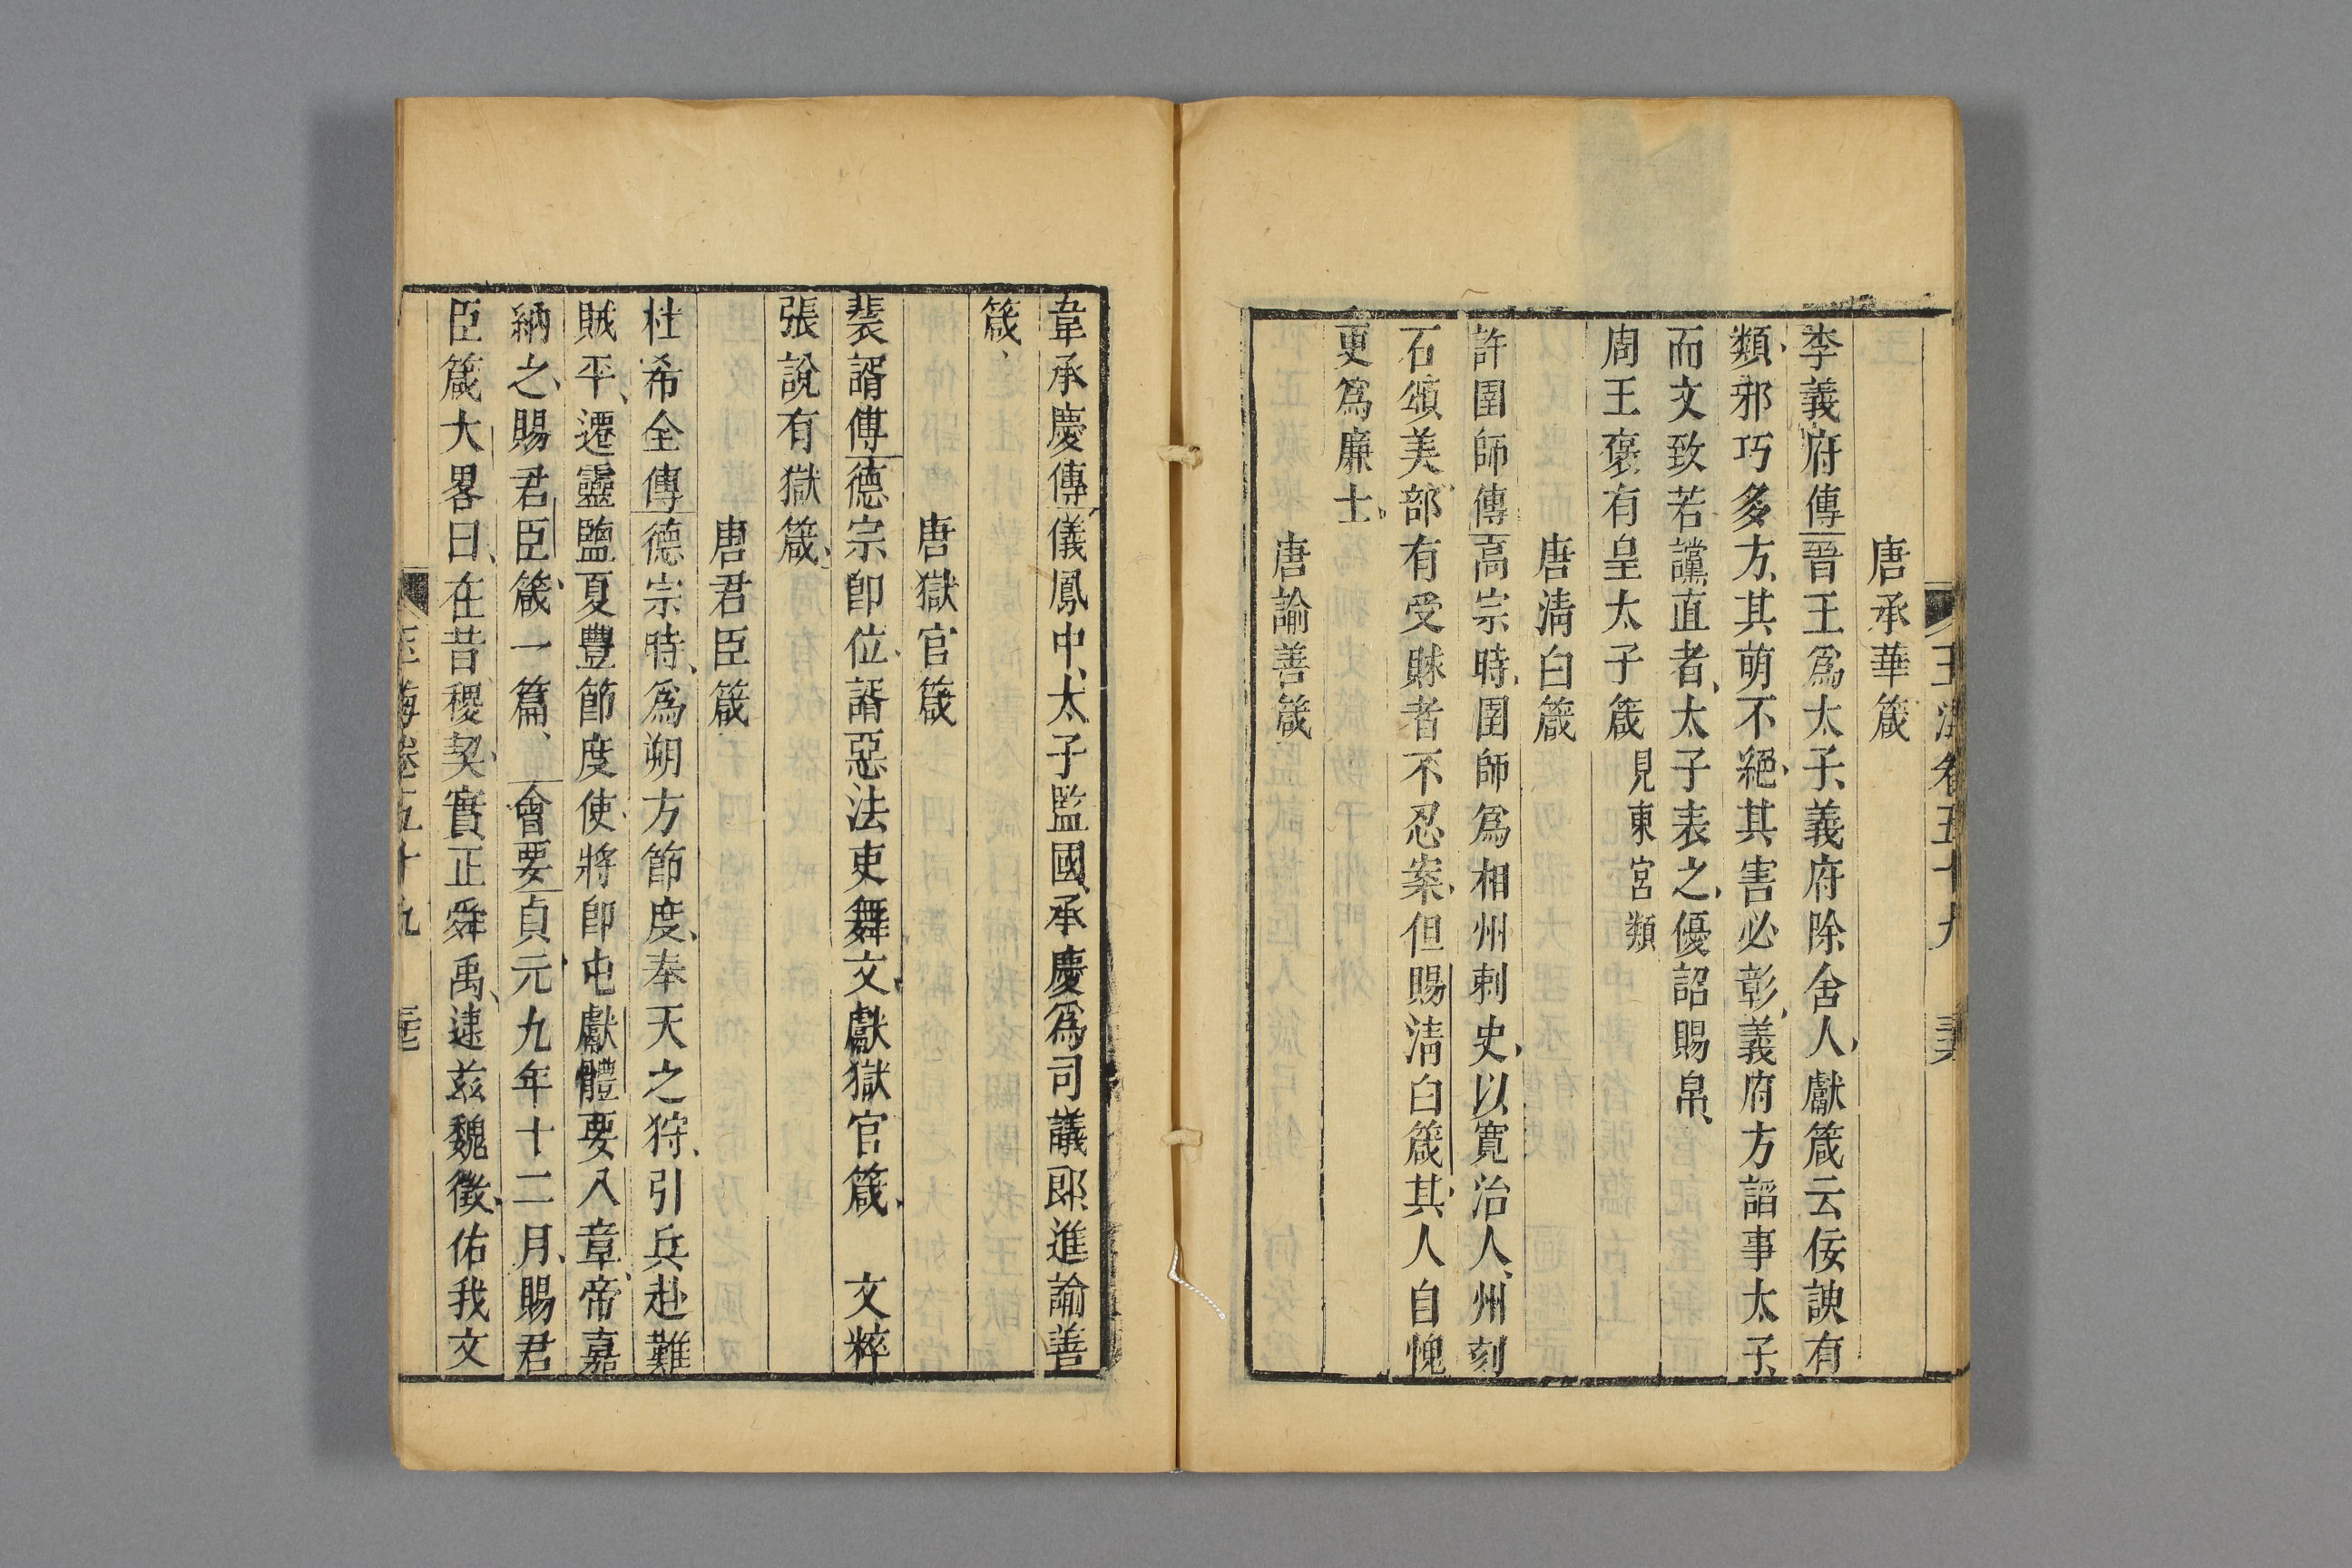 玉海卷五十九
唐承華箴
李義府傳晉王爲太子、義府除舍人、獻箴云佞諛有
類、邪巧多方、其萌不絕、其害必彰、義府方諂事太子、
而文致若讜直者、太子表之、優詔賜帛、
周王褒有皇太子箴見東宮類
唐淸白箴
許圉師傳高宗時、圉師爲相州刺史、以寬治人、州刻
石頌美、部有受賕者不忍案、但賜淸白箴、其人自愧
更爲廉士、
唐諭善箴
韋承慶傳儀鳳中、太子監國、承慶爲司議郎進諭善
箴、
唐獄官箴
裴諝傳德宗卽位、諝惡法吏舞文、獻獄官箴、 文粹
張說有獄箴、
唐君臣箴
杜希全傳德宗時、爲朔方節度、奉天之狩、引兵赴難
賊平、遷靈鹽夏豐節度使、將卽屯獻體要八章、帝嘉
納之、賜君臣箴一篇、會要貞元九年十二月、賜君
臣箴大畧曰、在昔稷契、實正舜禹、逮兹魏徵、佑我文
玉海卷五十九